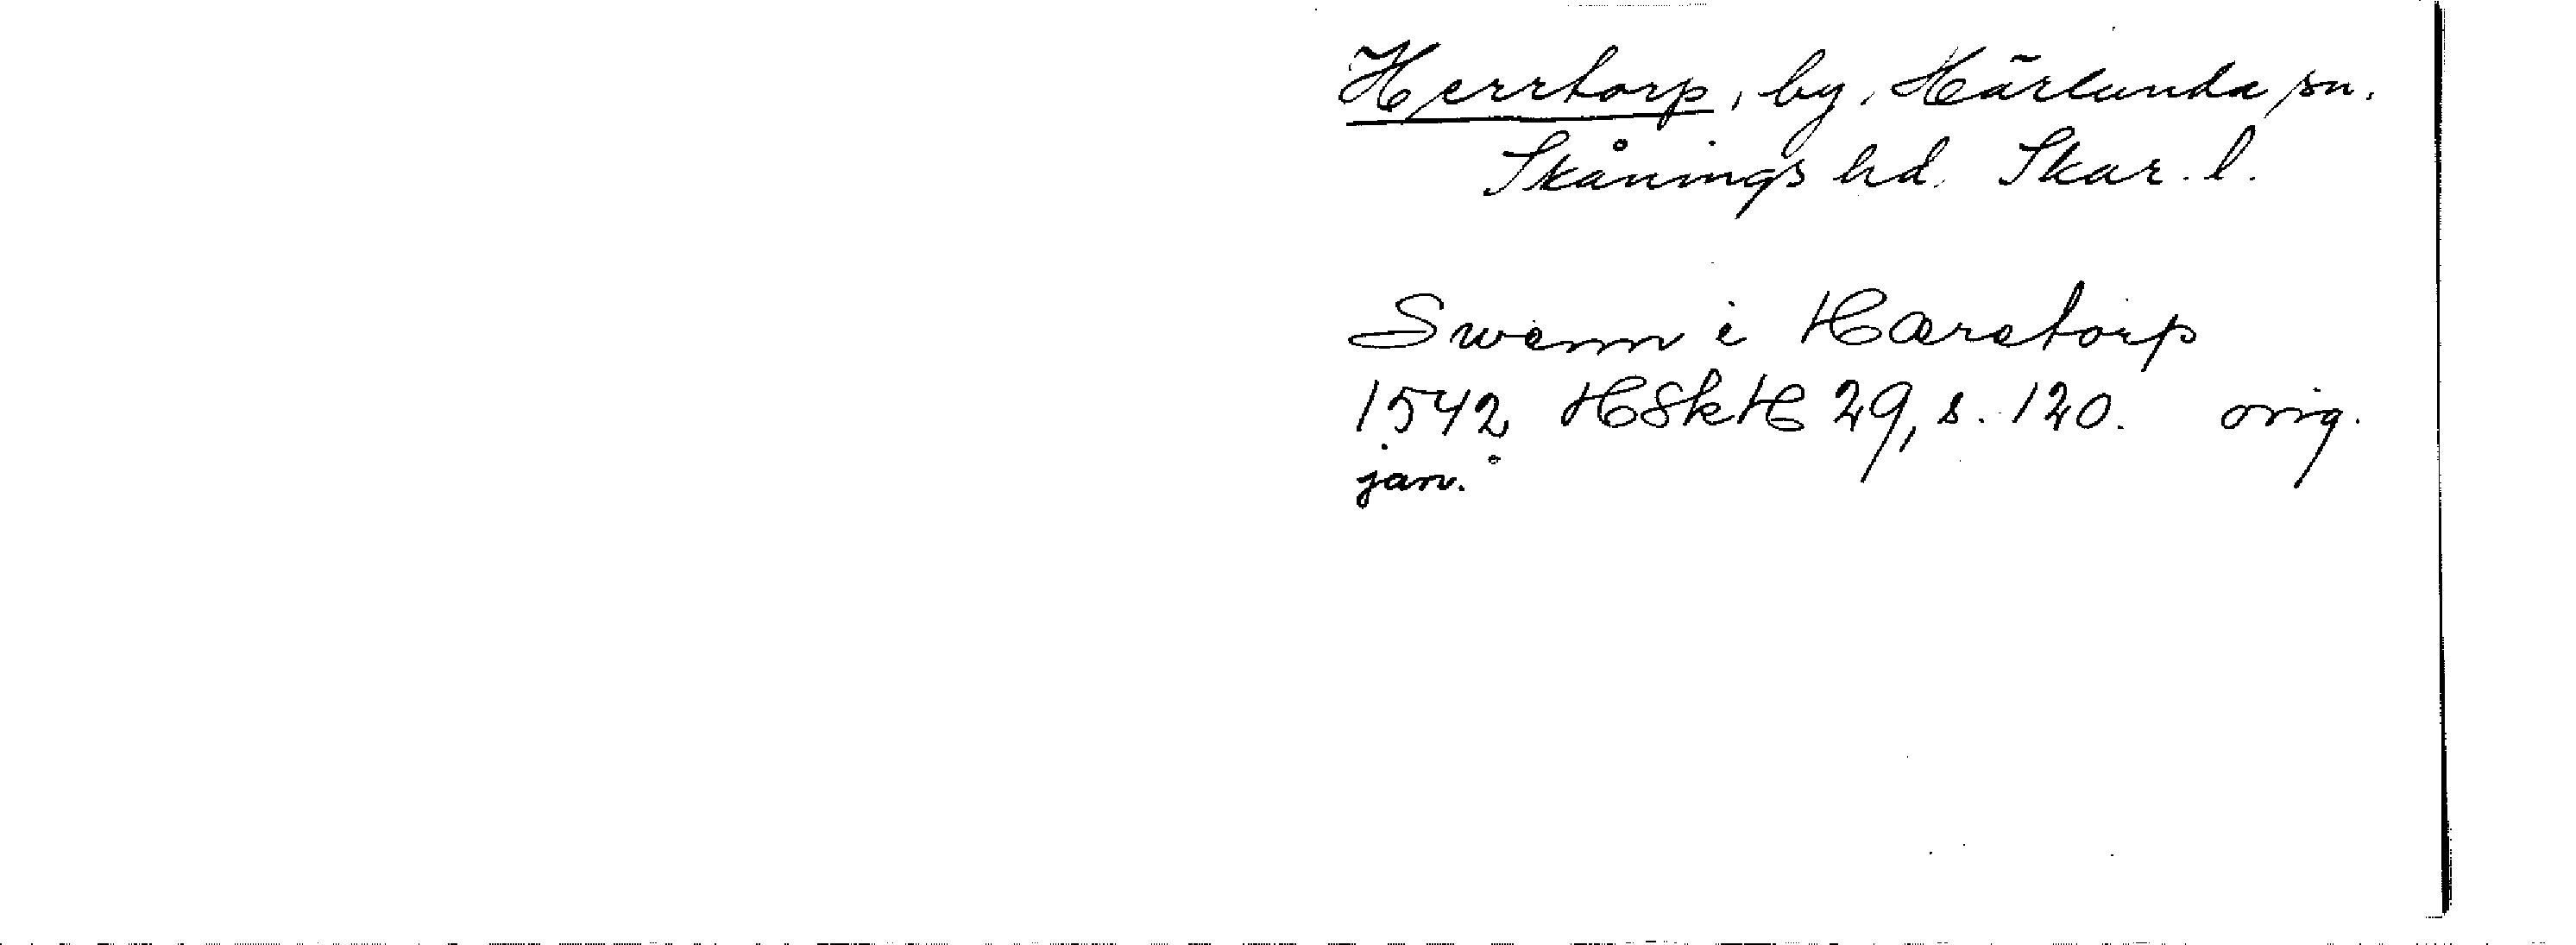 Herrtorp, by, Härlunda sn.
Skånings hd. Skar. l.
Swenn i Hæretorp
1542 HSkH 29, s. 120. orig.
jan.